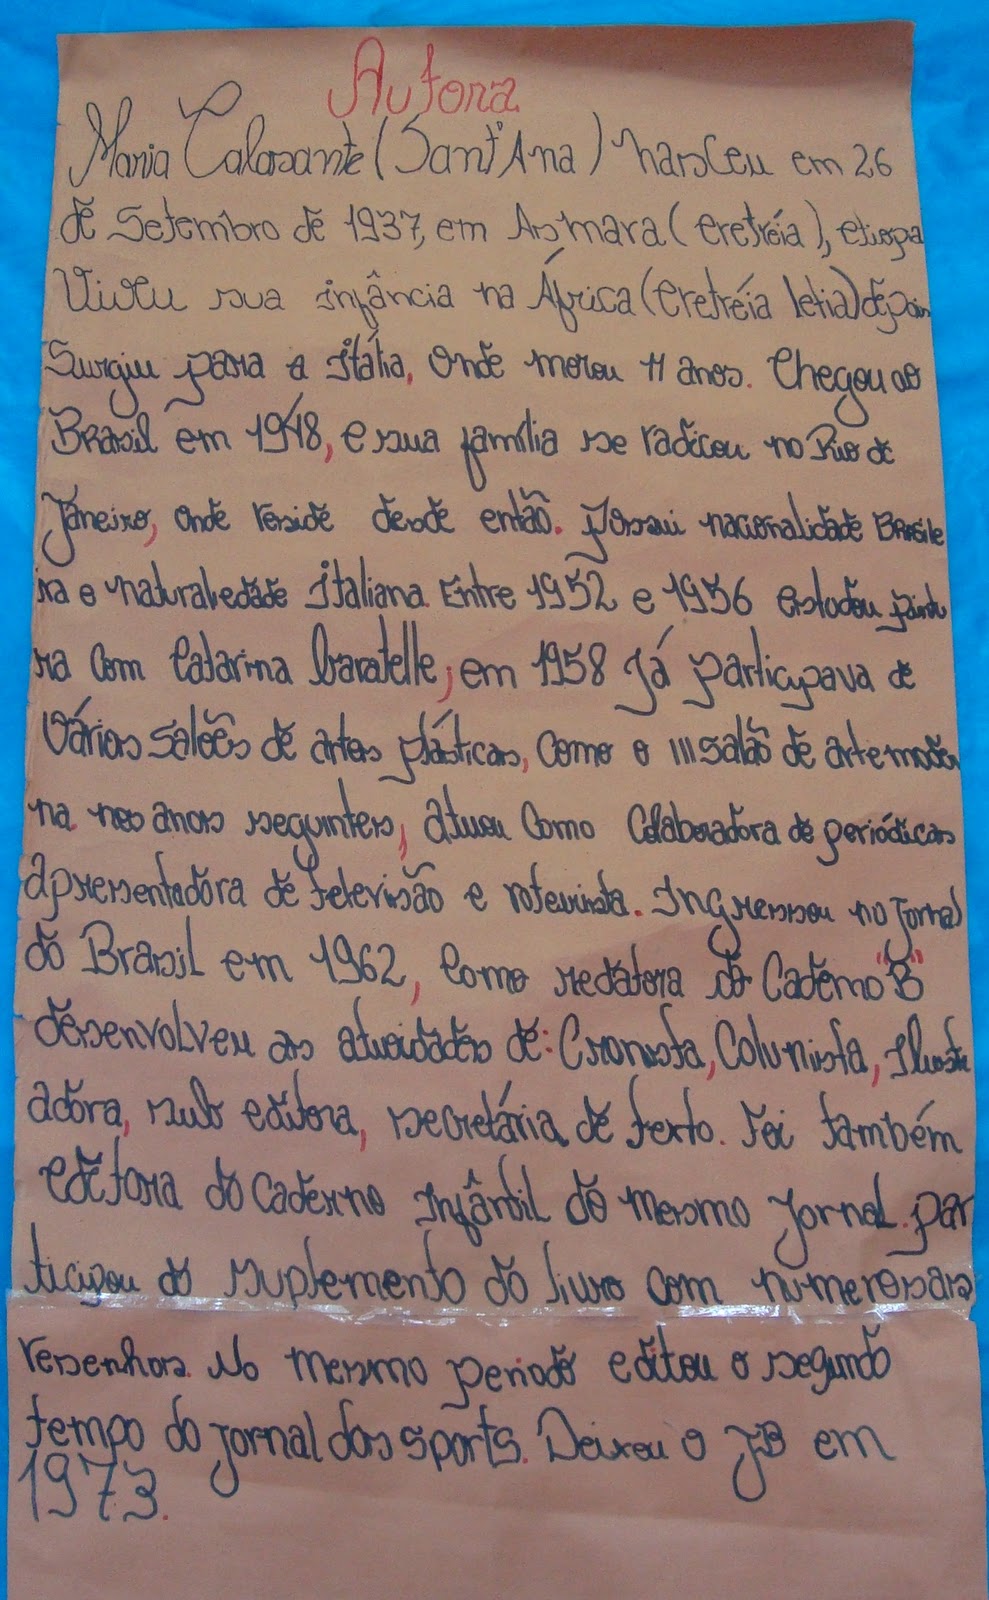 Autora
Maria Calasante (Sant'Ana) nasceu em 26
de Setembro de 1937, em Asmara (eretréia), etiopa
Viveu sua infância na África (eretréia letia) depois
Surgiu para a Itália, Onde morou 11 anos. Chegou ao
Brasil em 1948, e sua família se radicou no Rio de
Janeiro, onde reside desde então. Possui nacionalidade Brasile
ira e naturaliedade Italiana. Entre 1952 e 1956 estudou pintu
ra com Catarina baratelle; em 1958 já participava de
vários salões de artes plásticas, Como o III salão de arte moder
na. nos anos seguintes, atuou Como Colaboradora de periódicos
apresentadora de televisão e roteirista. Ingressou no jornal
do Brasil em 1962, Como redatora do Caderno "B"
desenvolveu as atividades de: Cronista, Colunista, Ilustr
adora, sub editora, secretária de texto. Foi também
editora do Caderno Infântil do mesmo jornal. par
ticipou do suplemento do livro com numerosas
resenhas. No mesmo periodo editou o segundo
tempo do jornal dos sports. Deixou o JB em
1973.